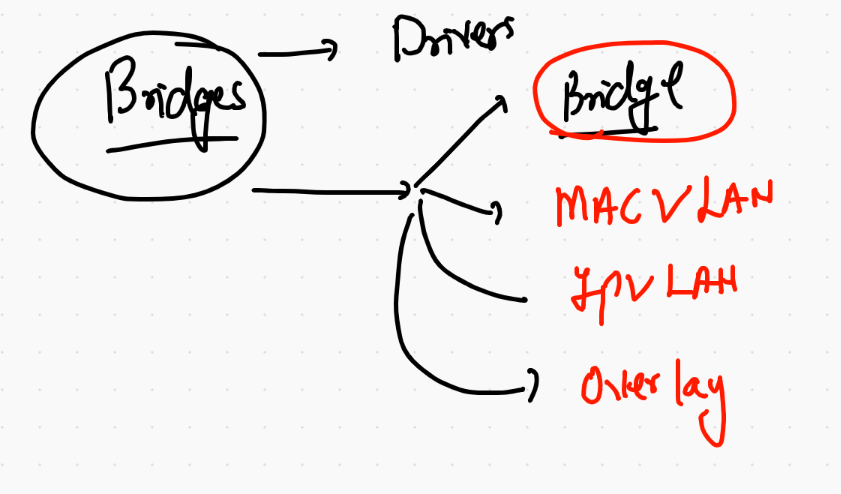 Drivers
Bridges
Bridge
MACVLAN
IPVLAN
Overlay